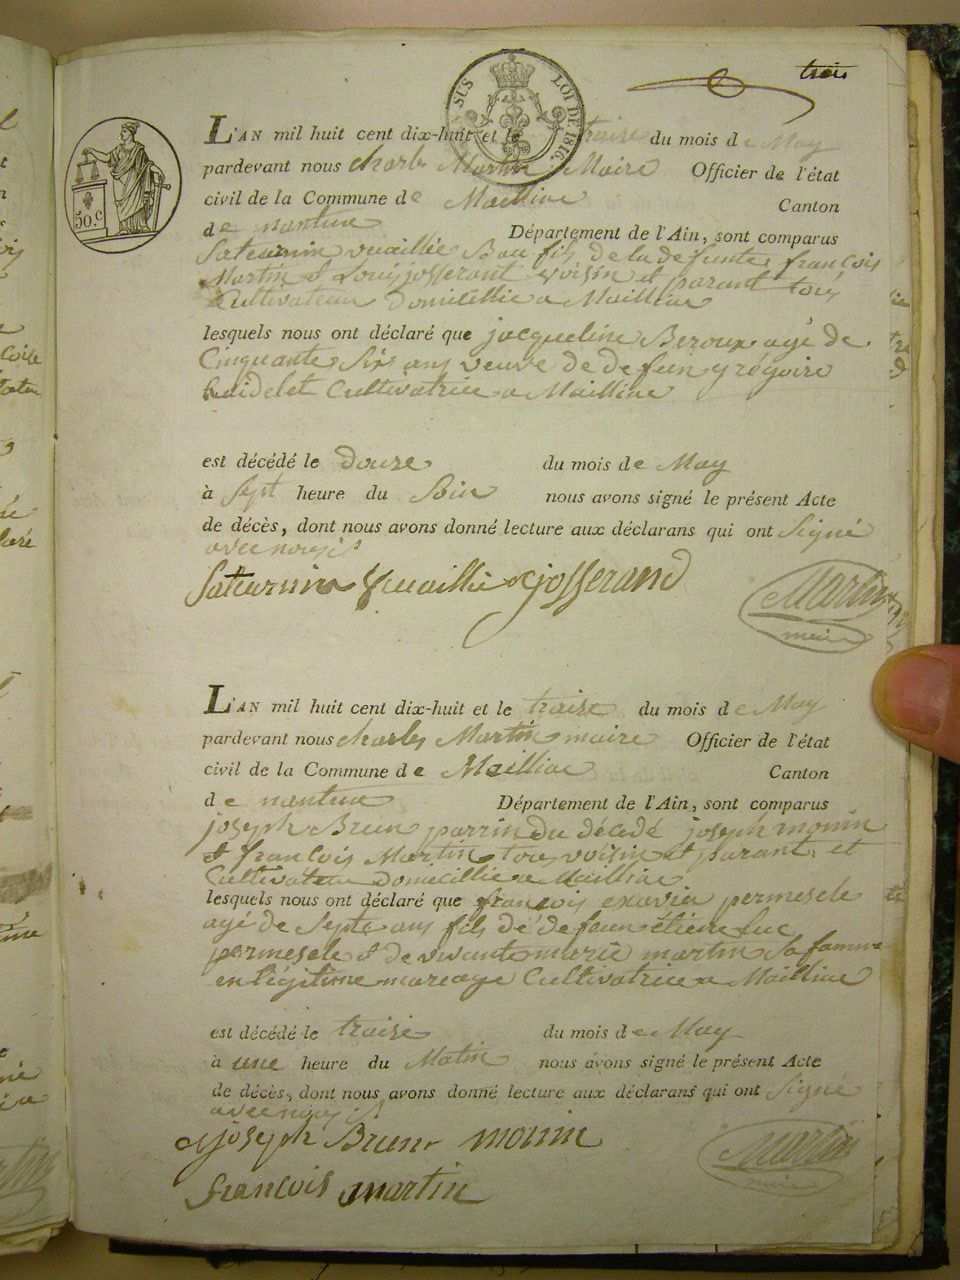 trois
SUS LOI DE 1816.
50.c
L'AN mil huit cent dix-huit et le traise du mois de May
pardevant nous Charles Martin Maire Officier de l'état
civil de la Commune de Mailliac Canton
de nantua Département de l'Ain, sont comparus
Saturnin vuaillie Bau fils de la defunte françois
Martin et Louis josserant voisin et parant tous
Cultivateur domicillie a Mailliac
lesquels nous ont déclaré que jacqueline Beroux agé de
Cinquante Six ans veuve de defeun grégoire
Cultivatrice a Mailliac
est décédé le douze du mois de May
à Sept heure du Soir nous avons signé le présent Acte
de décès, dont nous avons donné lecture aux déclarans qui ont Signé
avec nous
Saturnin Vuaillie josserand
Martin
maire
L'AN mil huit cent dix-huit et le traise du mois de May
pardevant nous Charles Martin maire Officier de l'état
civil de la Commune de Mailliac Canton
de nantua Département de l'Ain, sont comparus
joseph Brun parrin du décédé joseph monin
et françois Martin tous voisin et parant et
Cultivateur domicillie a Mailliac
lesquels nous ont déclaré que françois exavier permesele
agé de Septe ans fils de defeun étiene Luc
permesele et de vivante marie martin Sa famme
en légitime mariage Cultivatrice a Mailliac
est décédé le traise du mois de May
à une heure du Matin nous avons signé le présent Acte
de décès, dont nous avons donné lecture aux déclarans qui ont Signé
avec nous
joseph Brun monin
Martin
maire
françois martin